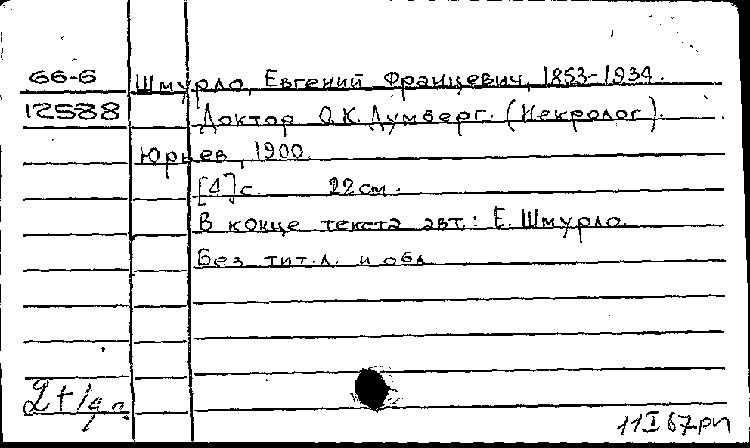 66-6 Шмурло, Евгений Францевич, 1853-1934.
12588 Доктор О.К. Думберг. (Некролог).
Юрьев, 1900.
[4] с. 22 см.
В конце текста авт.: Е. Шмурло.
Без тит.л. и обл.
2+1дп
11 I 67 рп